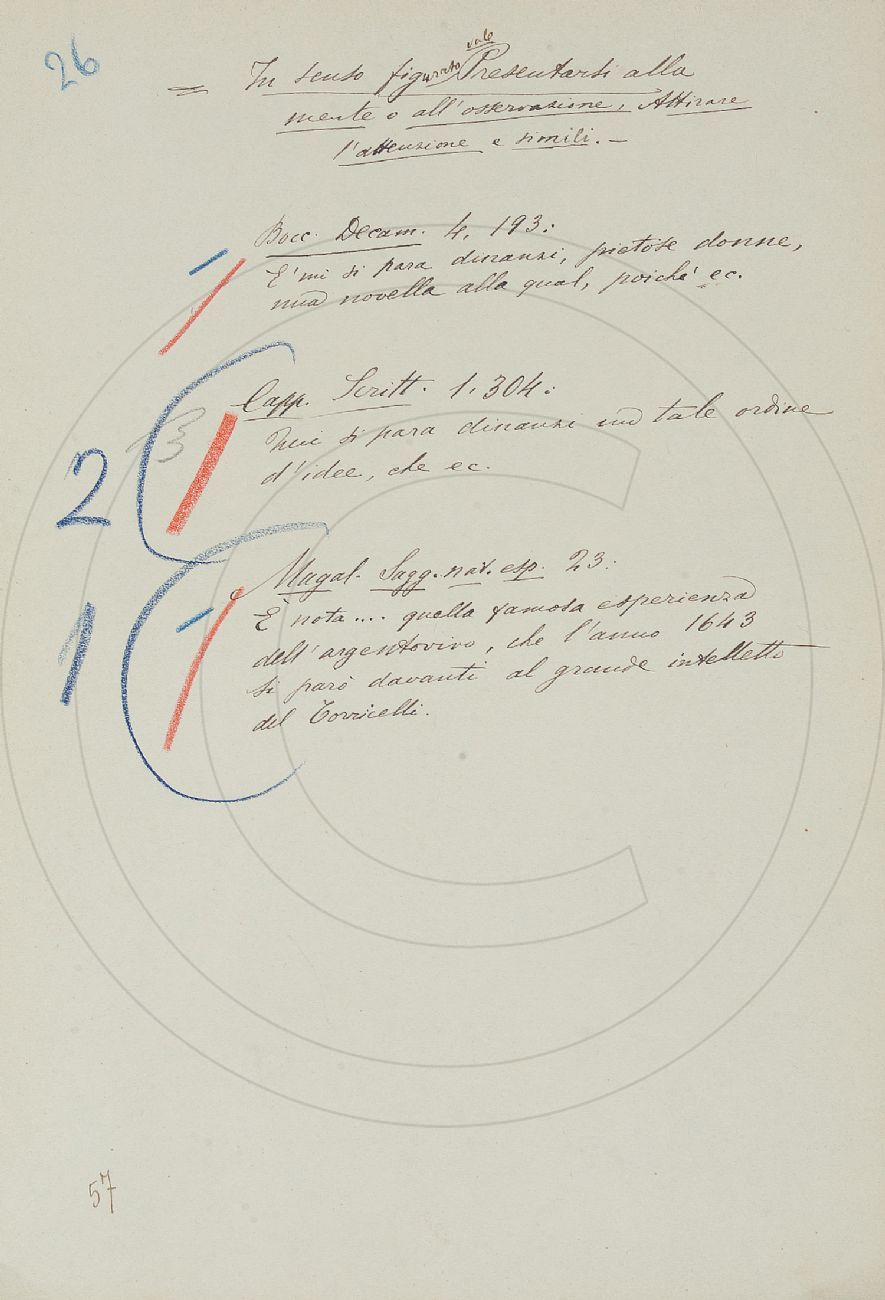 26
= In senso figurato vale Presentarsi alla
mente o all'osservazione, Attirare
l'attenzione e simili. —
Bocc. Decam. 4, 193:
E' mi si para dinanzi, pietose donne,
una novella alla qual, poichè ec.
Capp. Scritt. 1, 304:
Qui si para dinanzi un tale ordine
d'idee, che ec.
2
Magal. Sagg. nat. esp. 23:
È nota .... quella famosa esperienza
dell'argentovivo, che l'anno 1643
1
si parò davanti al grande intelletto
del Torricelli.
57